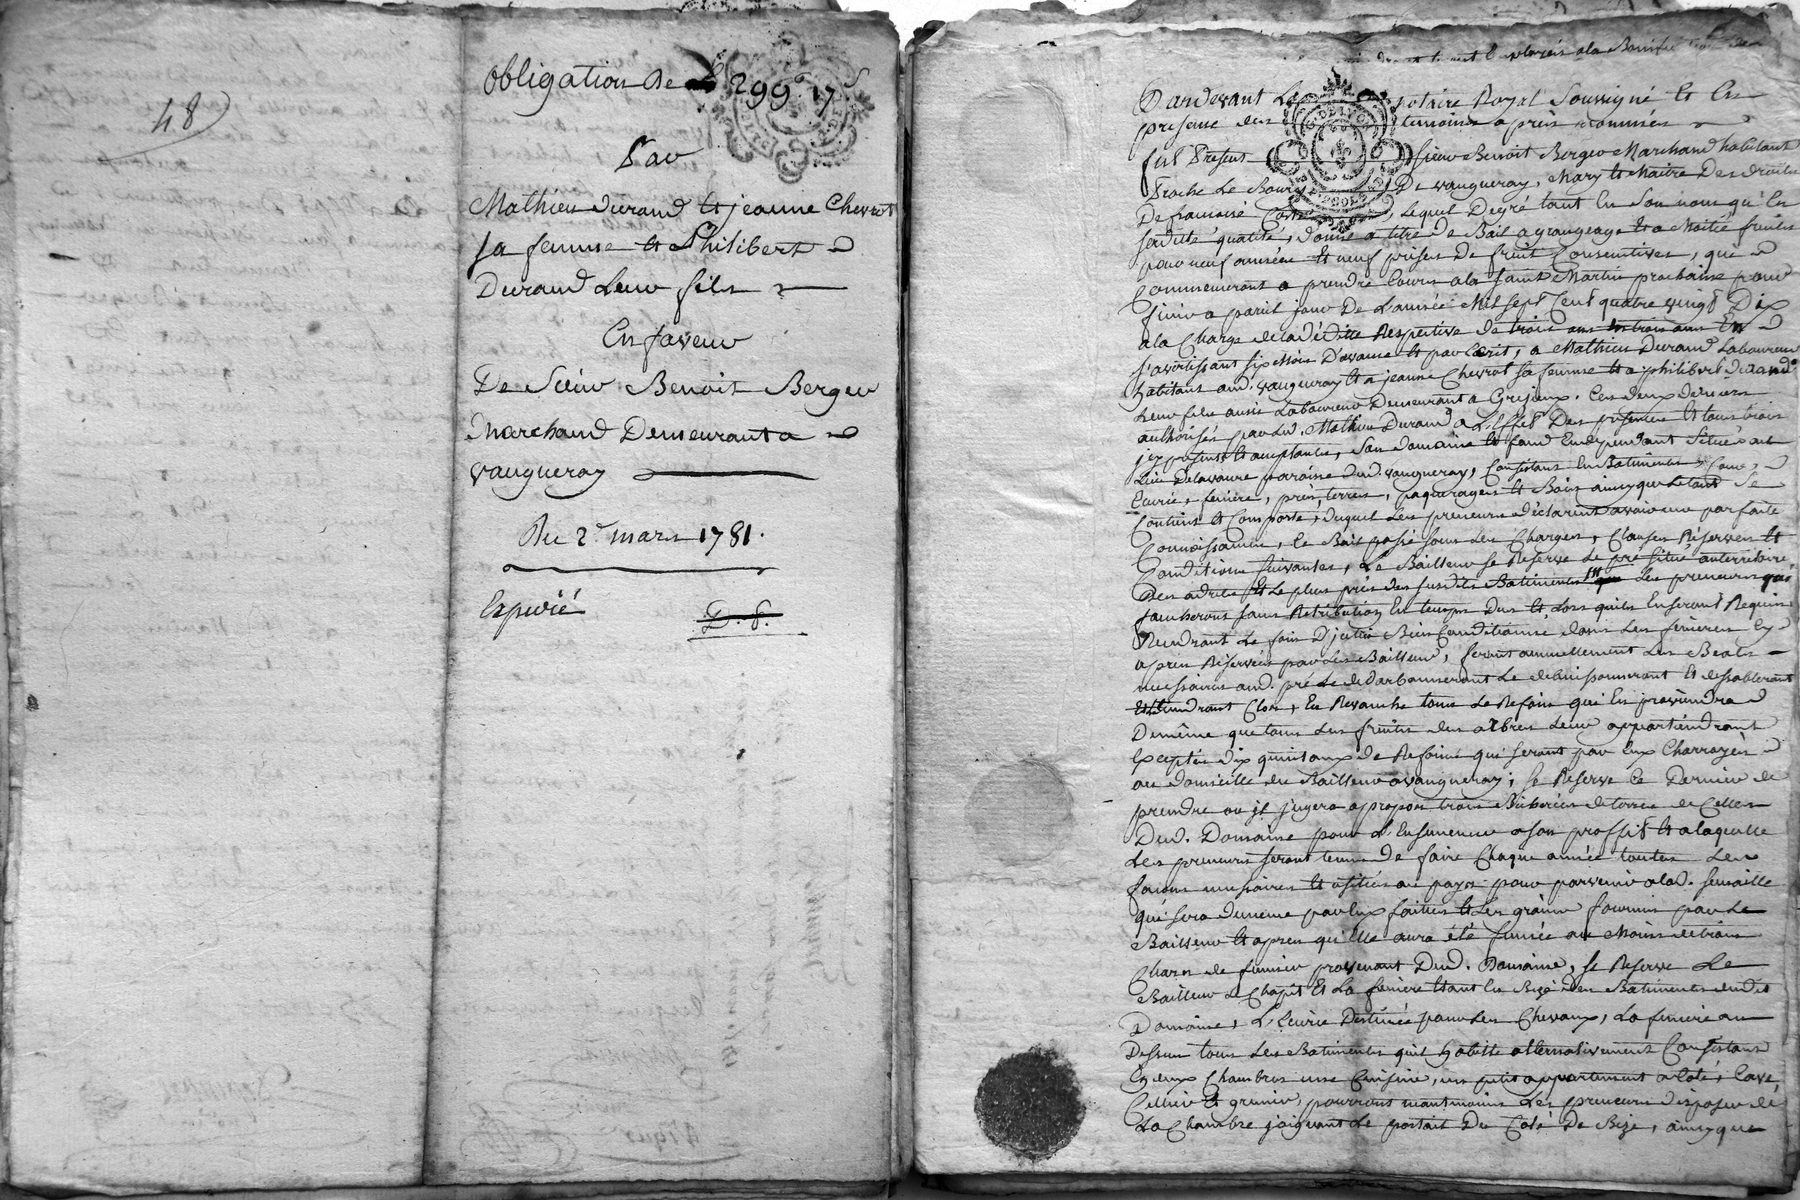 48
Obligation De 299 17
Par
Mathieu durand et jeanne Chevrot
sa femme et Philibert
Durand Leur fils
En faveur
De Sieur Benoit Berger
Marchand Demeurant a
vaugneray
Du 2 mars 1781.
Expedié
Pardevant Le notaire Royal Soussigné et En
presence des temoins apres nommés
fut Present sieur Benoit Berger Marchand habitant
De vaugneray, Mary et Maitre Des droits
De françoise lequel Degré tant En Son nom qu'En
sendite qualité, donne a titre De Bail a grangeage et a Moitié fruits
pour neuf années et neuf prises de fruit Consecutives, qui
Commenceront a prendre Cours a la Saint Martin prochaine pour
finir a pareil jour De L'année Mil sept Cent quatre vingt Dix
a la Charge de la dédite Respective de trois ans En trois ans En
s'avertissant six Mois D'avance et par Ecrit, a Mathieu Durand Laboureur
habitant aud. vaugneray et a jeanne Chevrot sa femme et a philibert durand
leur fils aussi Laboureur Demeurant a Grezieux. Ces deux derniers
authorisés par led. Mathieu Durand a L'Effet Des presentes et tous trois
icy presents et acceptants, Son domaine et fond En dependant Situés au
Lieu Delavaure paroisse dud. vaugneray, Consistant En Batiments, Cour,
Ecurie, feniere, prés, terres, paquerages et Bois ainsy que le tout Se
Contient et Comporte, duquel Les preneurs déclarent avoir une parfaite
Connoissance, le Bail passé sous les Charges, Clauses Réserves et
Conditions suivantes, Le Bailleur se Reserve Le pré Situé
et Le plus près des susdits Batiments que Les preneurs
faucheront sans Retribution En temps Dus et Lors qu'ils En seront Requis
Rendront Le foin D'iceluy Bien Conditionné dans Les fenieres Cy
apres Réservées par Les Bailleur, feront annuellement Les Beals
necessaires aud. pré Le Le debuissonneront Et dessableront
Clos, En Revanche tous Le Refoin qui En proviendra
De même que tous Les fruits des arbres Leur appartiendront
Exceptés dix quintaux de Refoin qui seront par Eux Charroyés
au domicille du Bailleur a vaugneray; Se Reserve Ce Dernier de
prendre ou il jugera apropos trois Bicherées de terre de Celles
Dud. Domaine pour L'Ensemencer a son proffit et a laquelle
Les preneurs seront tenus de faire Chaque année toutes Les
façons necessaires et usitées au pays pour parvenir a lad. semaille
qui sera de meme par Eux faittes et Les grains fournis par Le
Bailleur et apres qu'Elle aura été fumée au Moins de trois
Chars de fumier provenant Dud. Domaine, se Reserve Le
Bailleur Le Chapit Et La feniere Etant En Bize des Batiments dudit
Domaine, L'Ecurie Destinée pour Les Chevaux, La feniere au
Dessus tous Les Batiments qu'il habitte alternativement Consistant
En deux Chambres une Cuisine, un petit appartement a Coté, Cave,
Cellier Et grenier, pourront neantmoins Les preneurs disposer de
La Chambre joignant Le portail Du Coté De Bize, ainsy que